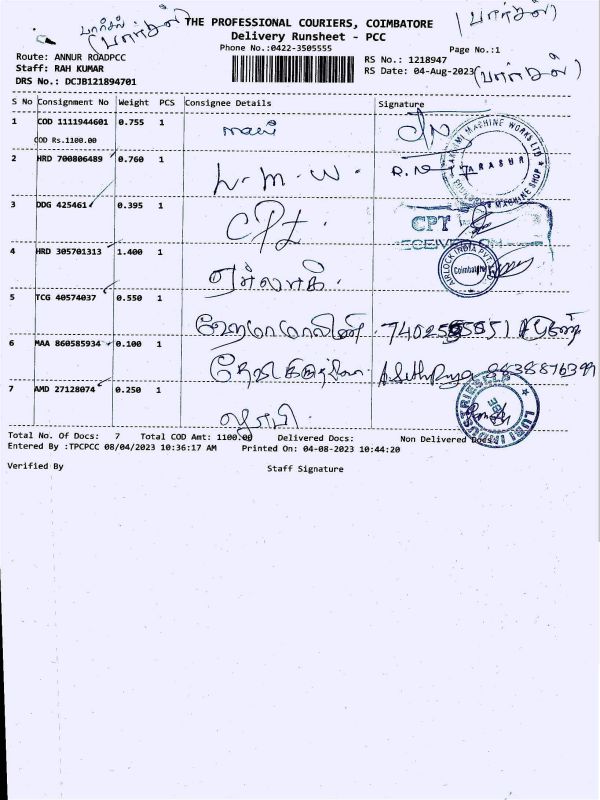 பார்சல்
(பார்சல்)
(பார்சல்)
THE PROFESSIONAL COURIERS, COIMBATORE
Delivery Runsheet - PCC
Phone No.:0422-3505555
Page No.:1
Route: ANNUR ROADPCC
RS No.: 1218947
Staff: RAH KUMAR
RS Date: 04-Aug-2023 (பார்சல்)
DRS No.: DCJB121894701
S No Consignment No Weight PCS Consignee Details Signature
1 COD 1111944601 0.755 1
COD Rs.1100.00
2 HRD 700806489 0.760 1 L.M.W.
3 DDG 425461 0.395 1 CPT
CPT
4 HRD 305701313 1.400 1 ஏர்லாக்.
AIRLOCK INDIA PVT
Coimbatore
5 TCG 40574037 0.550 1 ஹேமாமாலினி
6 MAA 860585934 0.100 1 9438876399
7 AMD 27128074 0.250 1 லூபி.
LUBI INDUSTRIES LLP
Total No. Of Docs: 7 Total COD Amt: 1100.00 Delivered Docs: Non Delivered Docs:
Entered By :TPCPCC 08/04/2023 10:36:17 AM Printed On: 04-08-2023 10:44:20
Verified By Staff Signature